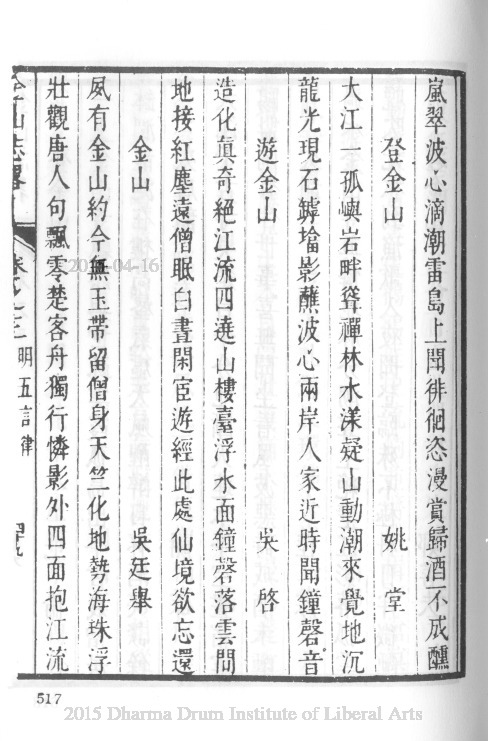 嵐翠波心滴潮雷島上聞徘徊恣漫賞歸酒不成醺
登金山 姚堂
大江一孤嶼岩畔聳禪林水漾疑山動潮來覺地沉
龍光現石罅墖影蘸波心兩岸人家近時聞鐘磬音
遊金山 吳啓
造化眞奇絕江流四遶山樓臺浮水面鐘磬落雲間
地接紅塵遠僧眠白晝閑宦遊經此處仙境欲忘還
金山 吳廷舉
夙有金山約今無玉帶留僧身天竺化地勢海珠浮
壯觀唐人句飄零楚客舟獨行憐影外四面抱江流
金山志畧 卷之三 明五言律 四十九
517
2015-04-16
2015 Dharma Drum Institute of Liberal Arts